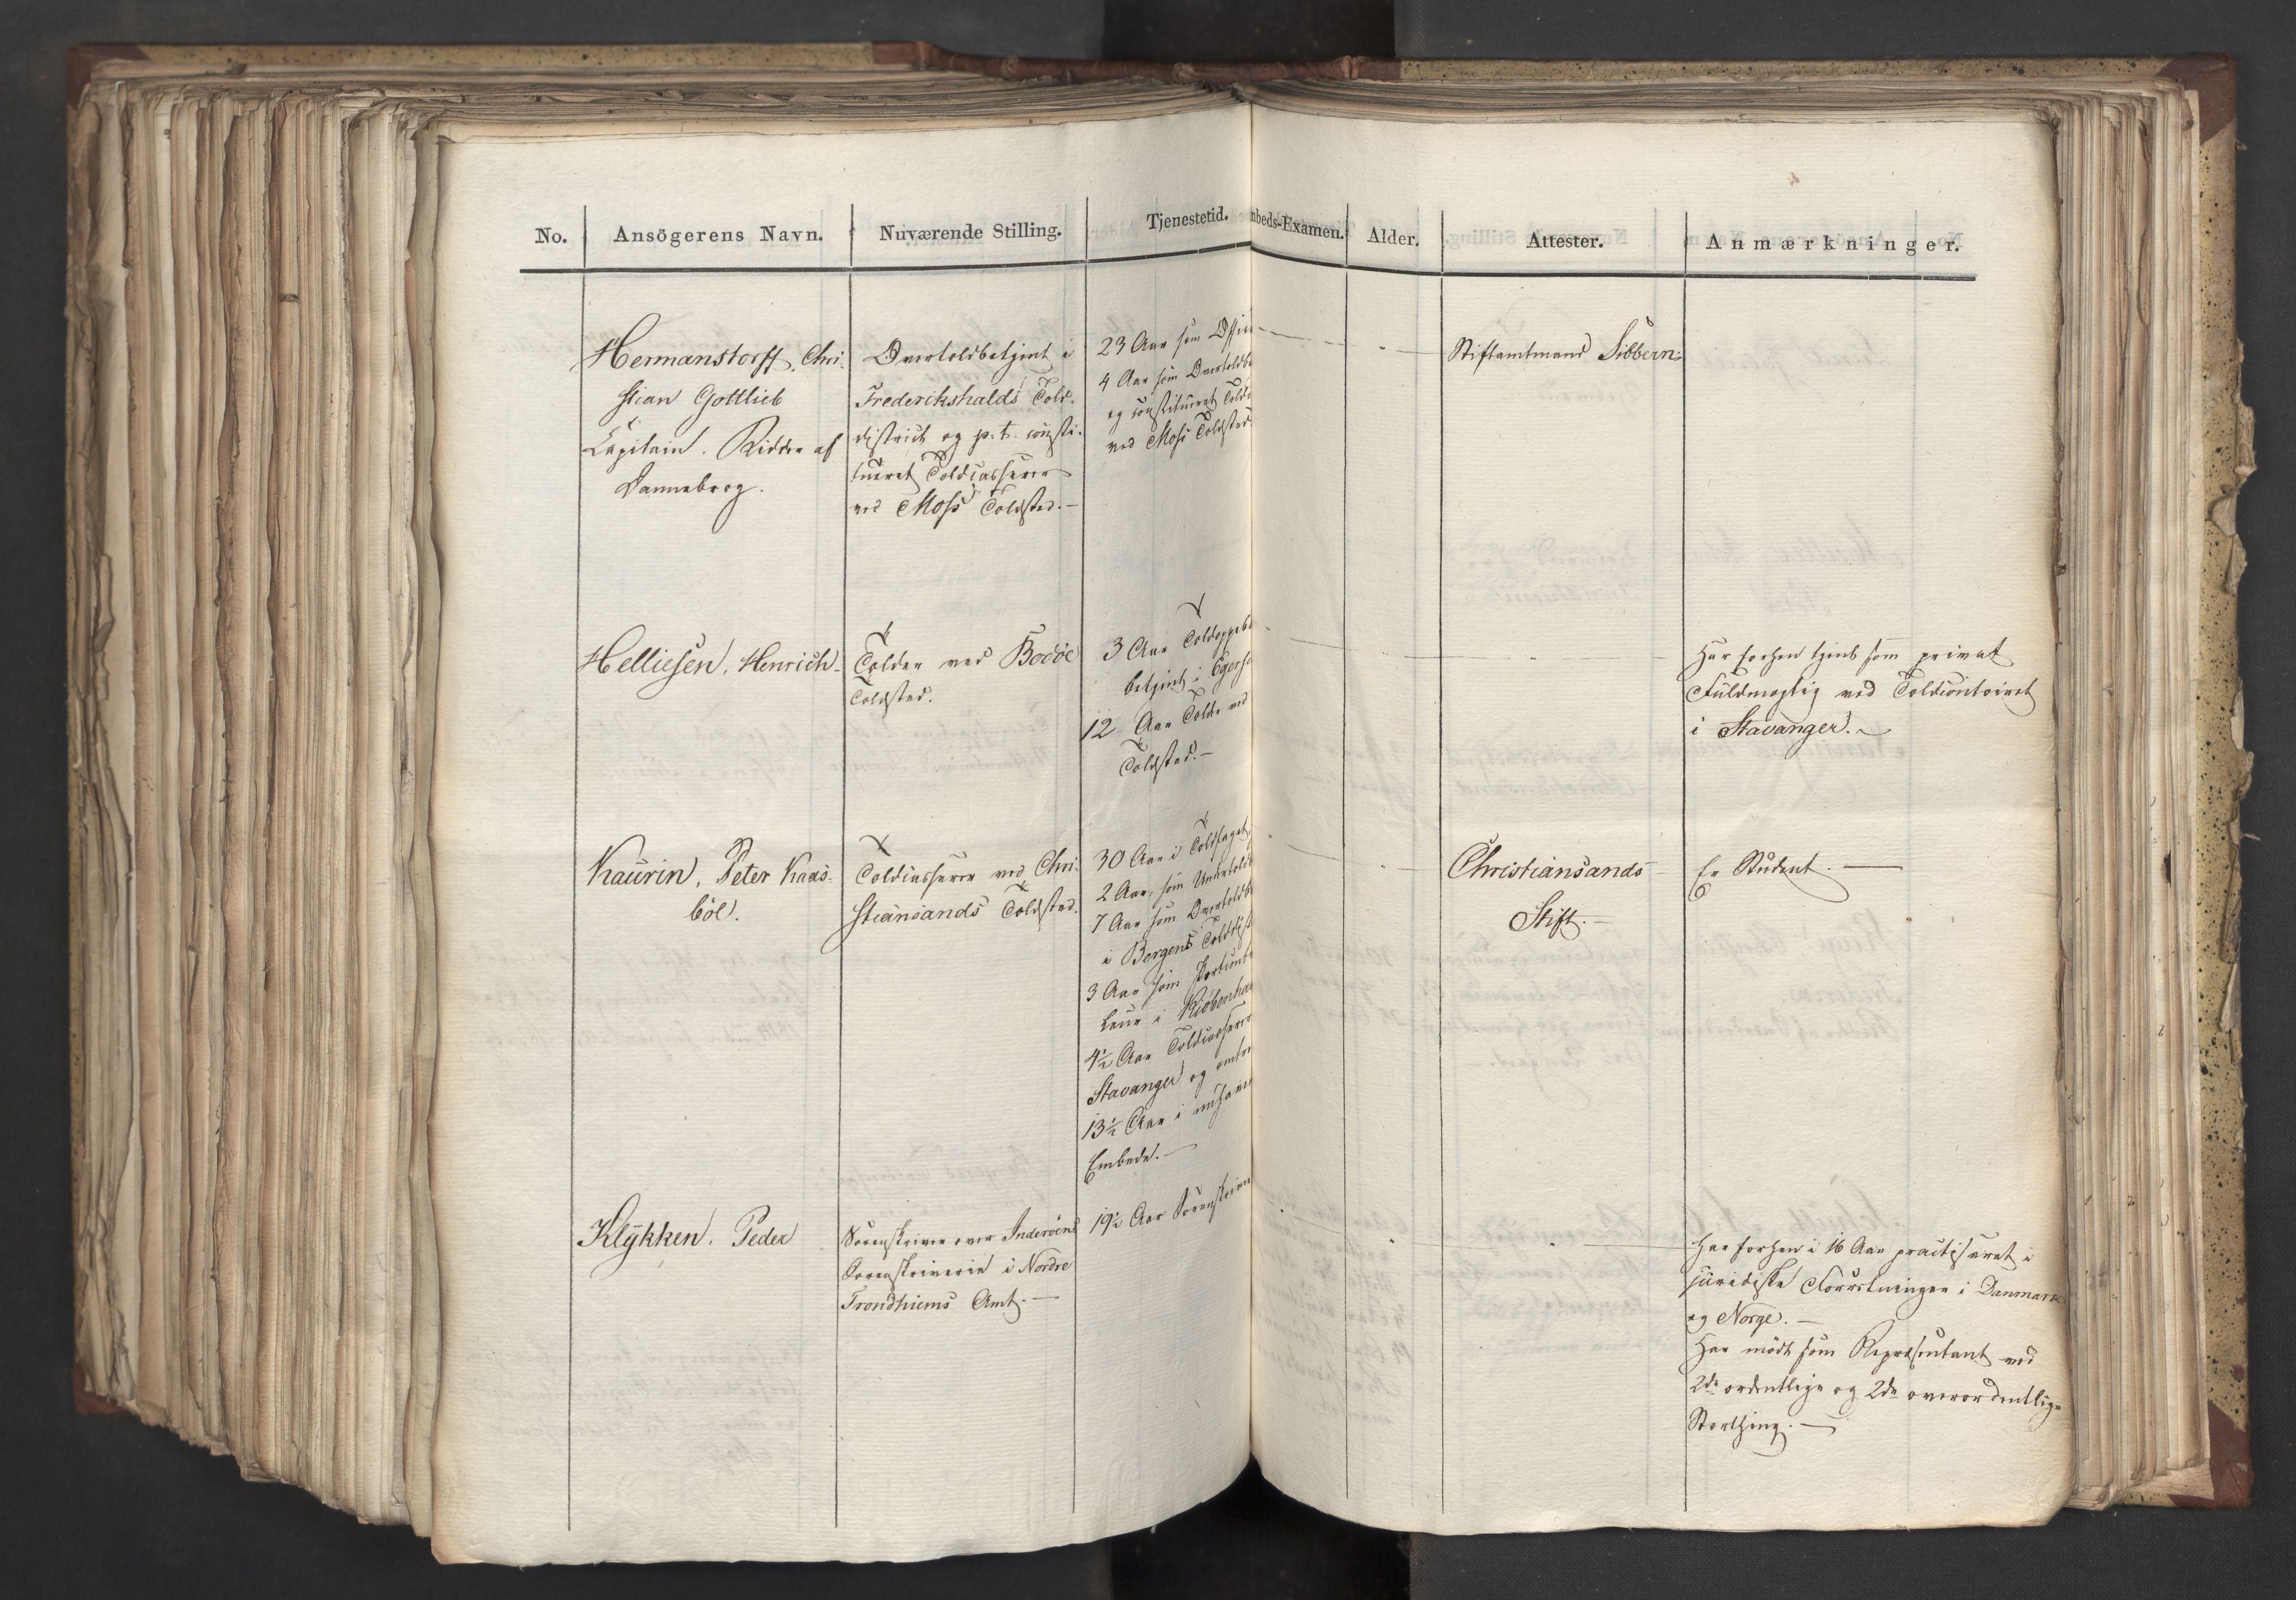 No. Ansögerens Navn. Nuværende Stilling. Tjenestetid. mbeds-Examen. Alder. Attester. Anmærkninger.
Hermanstorff, Chri-
stian Gottlieb
Capitain. Ridder af
Dannebrog.
Overtoldbetjent i
Frederikshalds Told-
district og p. t. consti-
tueret Toldcasserer
ved Moss Toldsted. –
23 Aar som Offic
4 Aar som Overtoldbe
og constitueret Toldc
ved Moss Toldsted
Stiftamtmand Sibbern.
Helliesen, Henrich
Tolder ved Bodöe
Toldsted.
3 Aar Toldoppebø
betjent i Egersu
12 Aar Tolder ved
Toldsted. –
Har forhen tjent som privat
Fuldmægtig ved Toldcontoiret
i Stavanger. –
Kaurin, Peter Kaas-
böl.
Toldcasserer ved Chri-
stiansands Toldsted.
30 Aar i Toldfaget,
2 Aar som Undertoldb
7 Aar som Overtoldbe
i Bergens Tolddist
3 Aar som Portcont
leur i Kiöbenhav
4½ Aar Toldcasserer
Stavanger og omtre
13½ Aar i nuhavend
Embede. –
Christiansands
Stift. –
Er Student. –
Klÿkken, Peder
Sorenskriver over Inderöens
Sorenskriverie i Nordre
Trondhiems Amt. –
19½ Aar Sorenskriver
Har forhen i 16 Aar practiseret i
juridiske Forretninger i Danmark
og Norge. –
Har mödt som Repræsentant ved
2de ordentlige og 2de overordentlige
Storthing. –